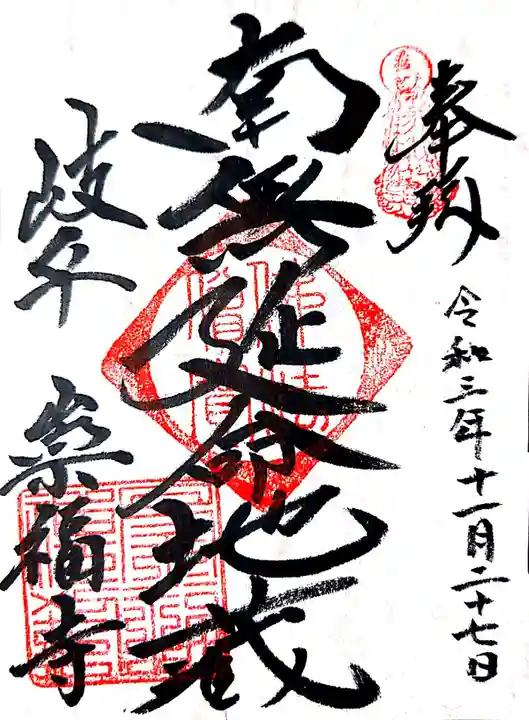 奉拝
令和三年十一月二十七日
南無延命地蔵
岐阜
崇福寺
佛法僧寳